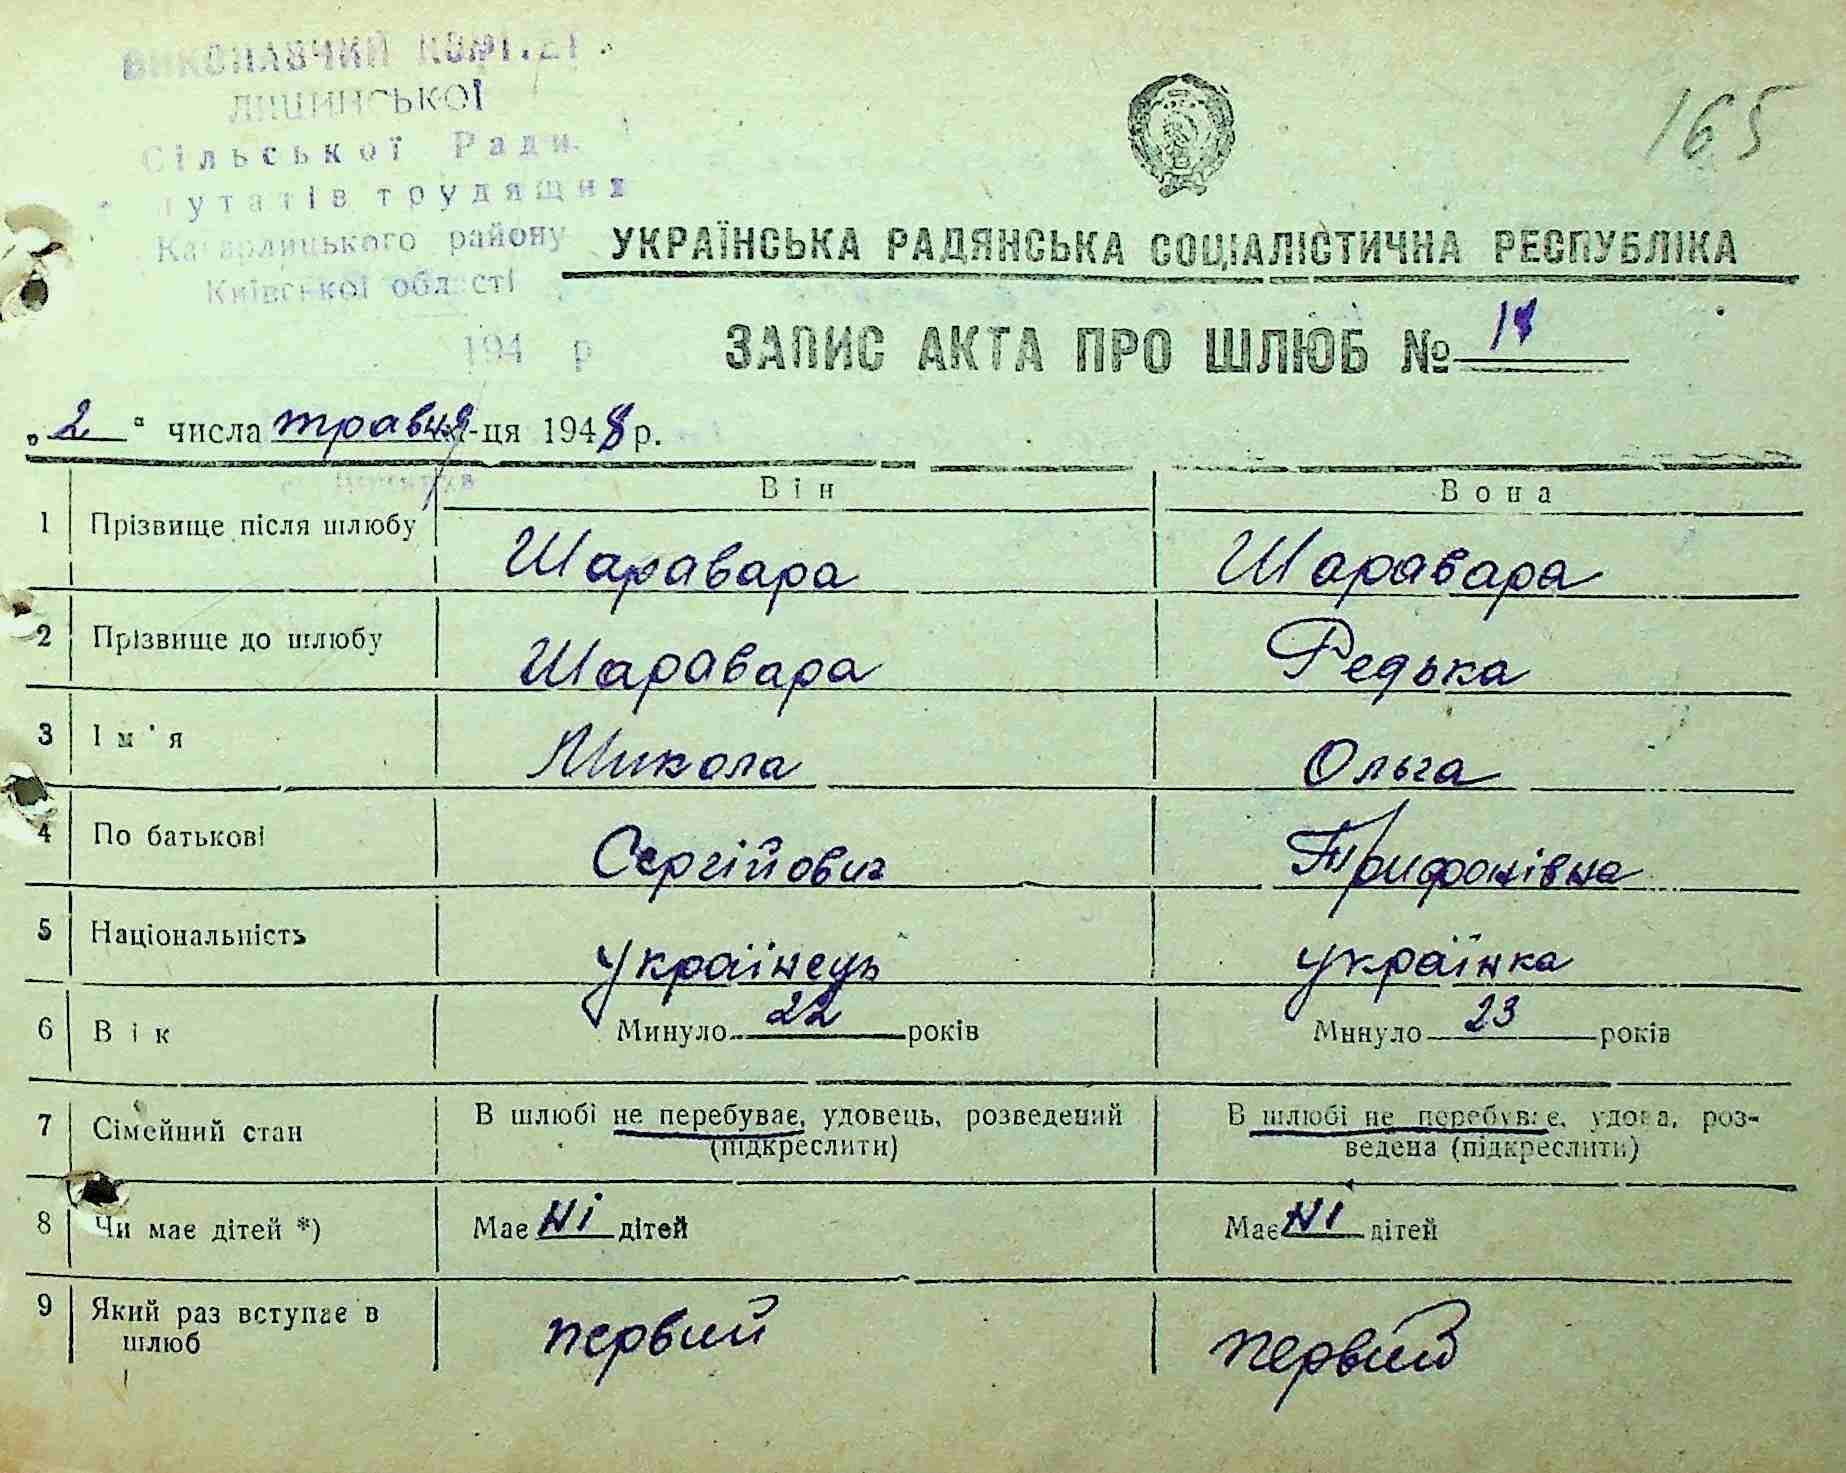 ВИКОНАВЧИЙ КОМІТЕТ
Сільської Ради
трудящих
Кагарлицького району
Київської області
194 р
165
УКРАЇНСЬКА РАДЯНСЬКА СОЦІАЛІСТИЧНА РЕСПУБЛІКА
ЗАПИС АКТА ПРО ШЛЮБ №
„2“ числа травня-ця 1948 р.
Він Вона
1 Прізвище після шлюбу Шаравара Шаравара
2 Прізвище до шлюбу Шаравара Редька
3 Ім'я Микола Ольга
4 По батькові Сергійович Трифонівна
5 Національність українець українка
6 Вік Минуло 22 років Минуло 23 років
7 Сімейний стан В шлюбі не перебуває, удовець, розведений (підкреслити) В шлюбі не перебуває, удова, роз-
ведена (підкреслити)
8 Чи має дітей *) Має ні дітей Має ні дітей
9 Який раз вступає в
шлюб первий первий